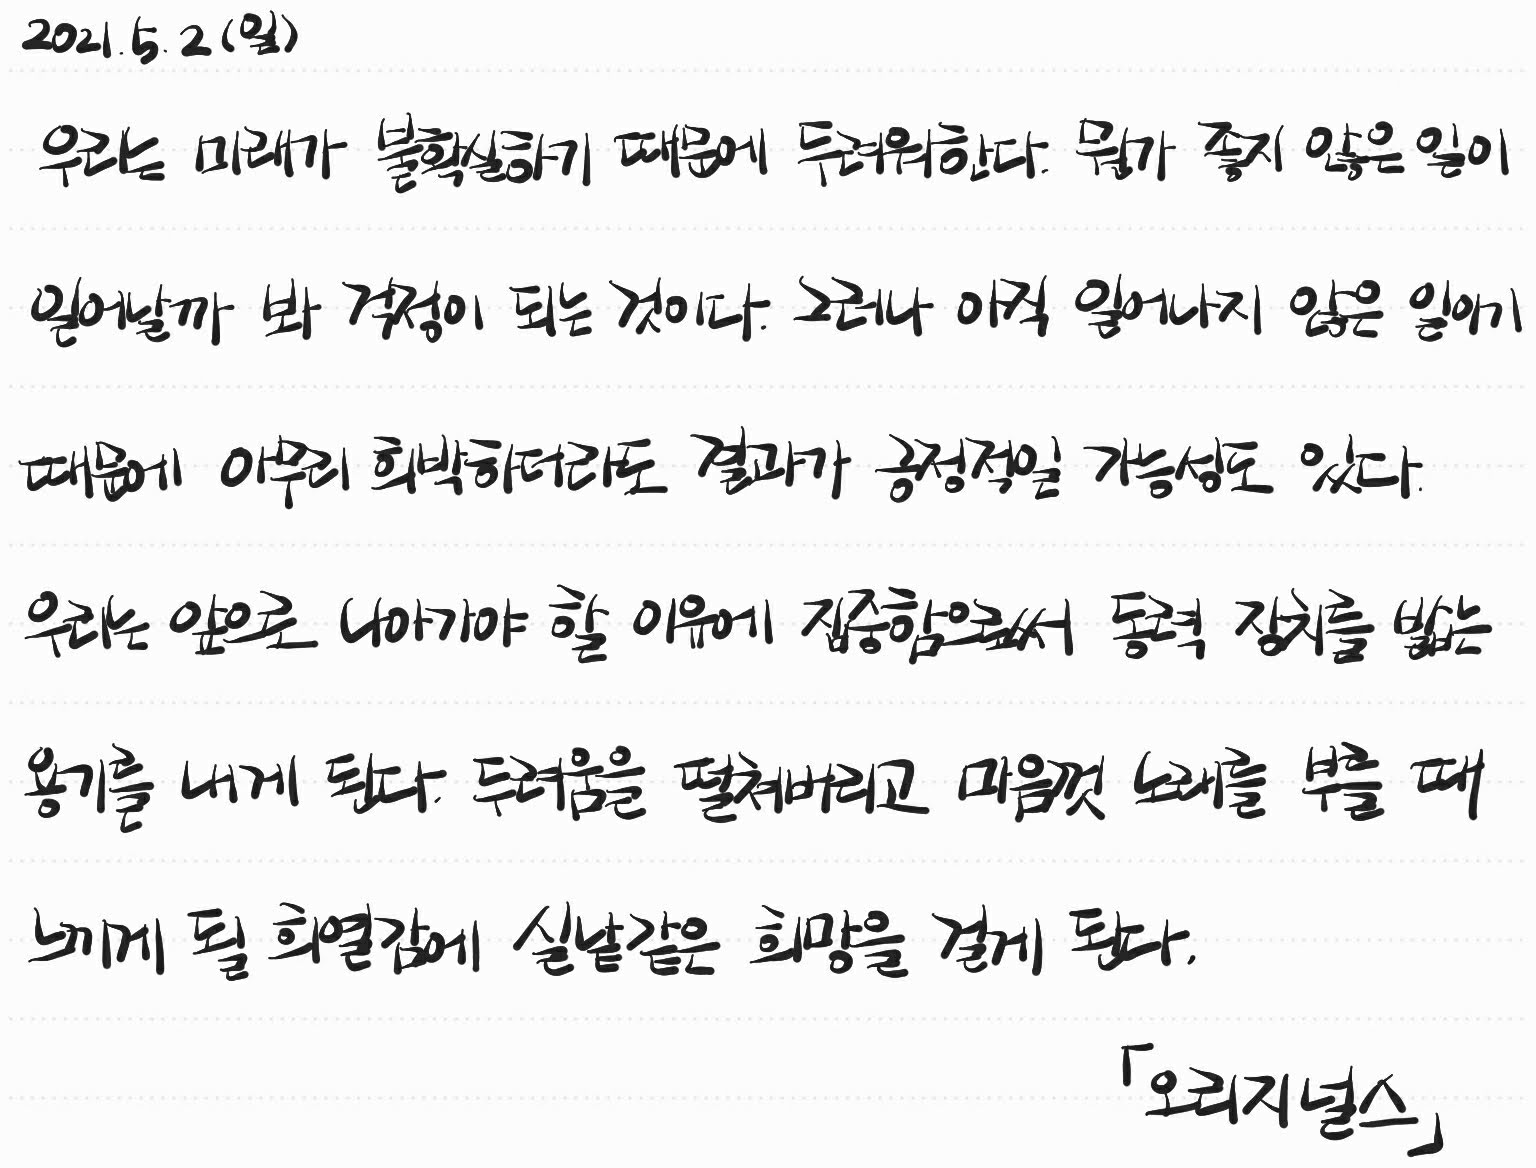 2021. 5. 2 (일)
우리는 미래가 불확실하기 때문에 두려워한다. 뭔가 좋지 않은 일이
일어날까 봐 걱정이 되는 것이다. 그러나 아직 일어나지 않은 일이기
때문에 아무리 희박하더라도 결과가 긍정적일 가능성도 있다.
우리는 앞으로 나아가야 할 이유에 집중함으로써 동력 장치를 밟는
용기를 내게 된다. 두려움을 떨쳐버리고 마음껏 노래를 부를 때
느끼게 될 희열감에 실낱같은 희망을 걸게 된다.
「오리지널스」